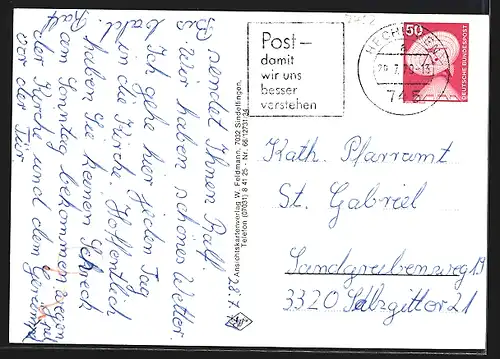 sendet Ihnen Ralf.
28.7.79
Wir haben schönes Wetter.
Ich gehe hier jeden Tag
in die Kirche. Hoffentlich
haben Sie keinen Schreck
am Sonntag bekommen
der Kirche und dem
vor der Tür.
Bis
bald
Ralf
Ansichtskartenverlag W. Feldmann, 7032 Sindelfingen,
Telefon (07031) 8 41 25 - Nr. 66 12731/34
Post –
damit
wir uns
besser
verstehen
HECHINGEN
745
50
DEUTSCHE BUNDESPOST
Kath. Pfarramt
St. Gabriel
Sandgrubenweg 19
3320 Salzgitter 21